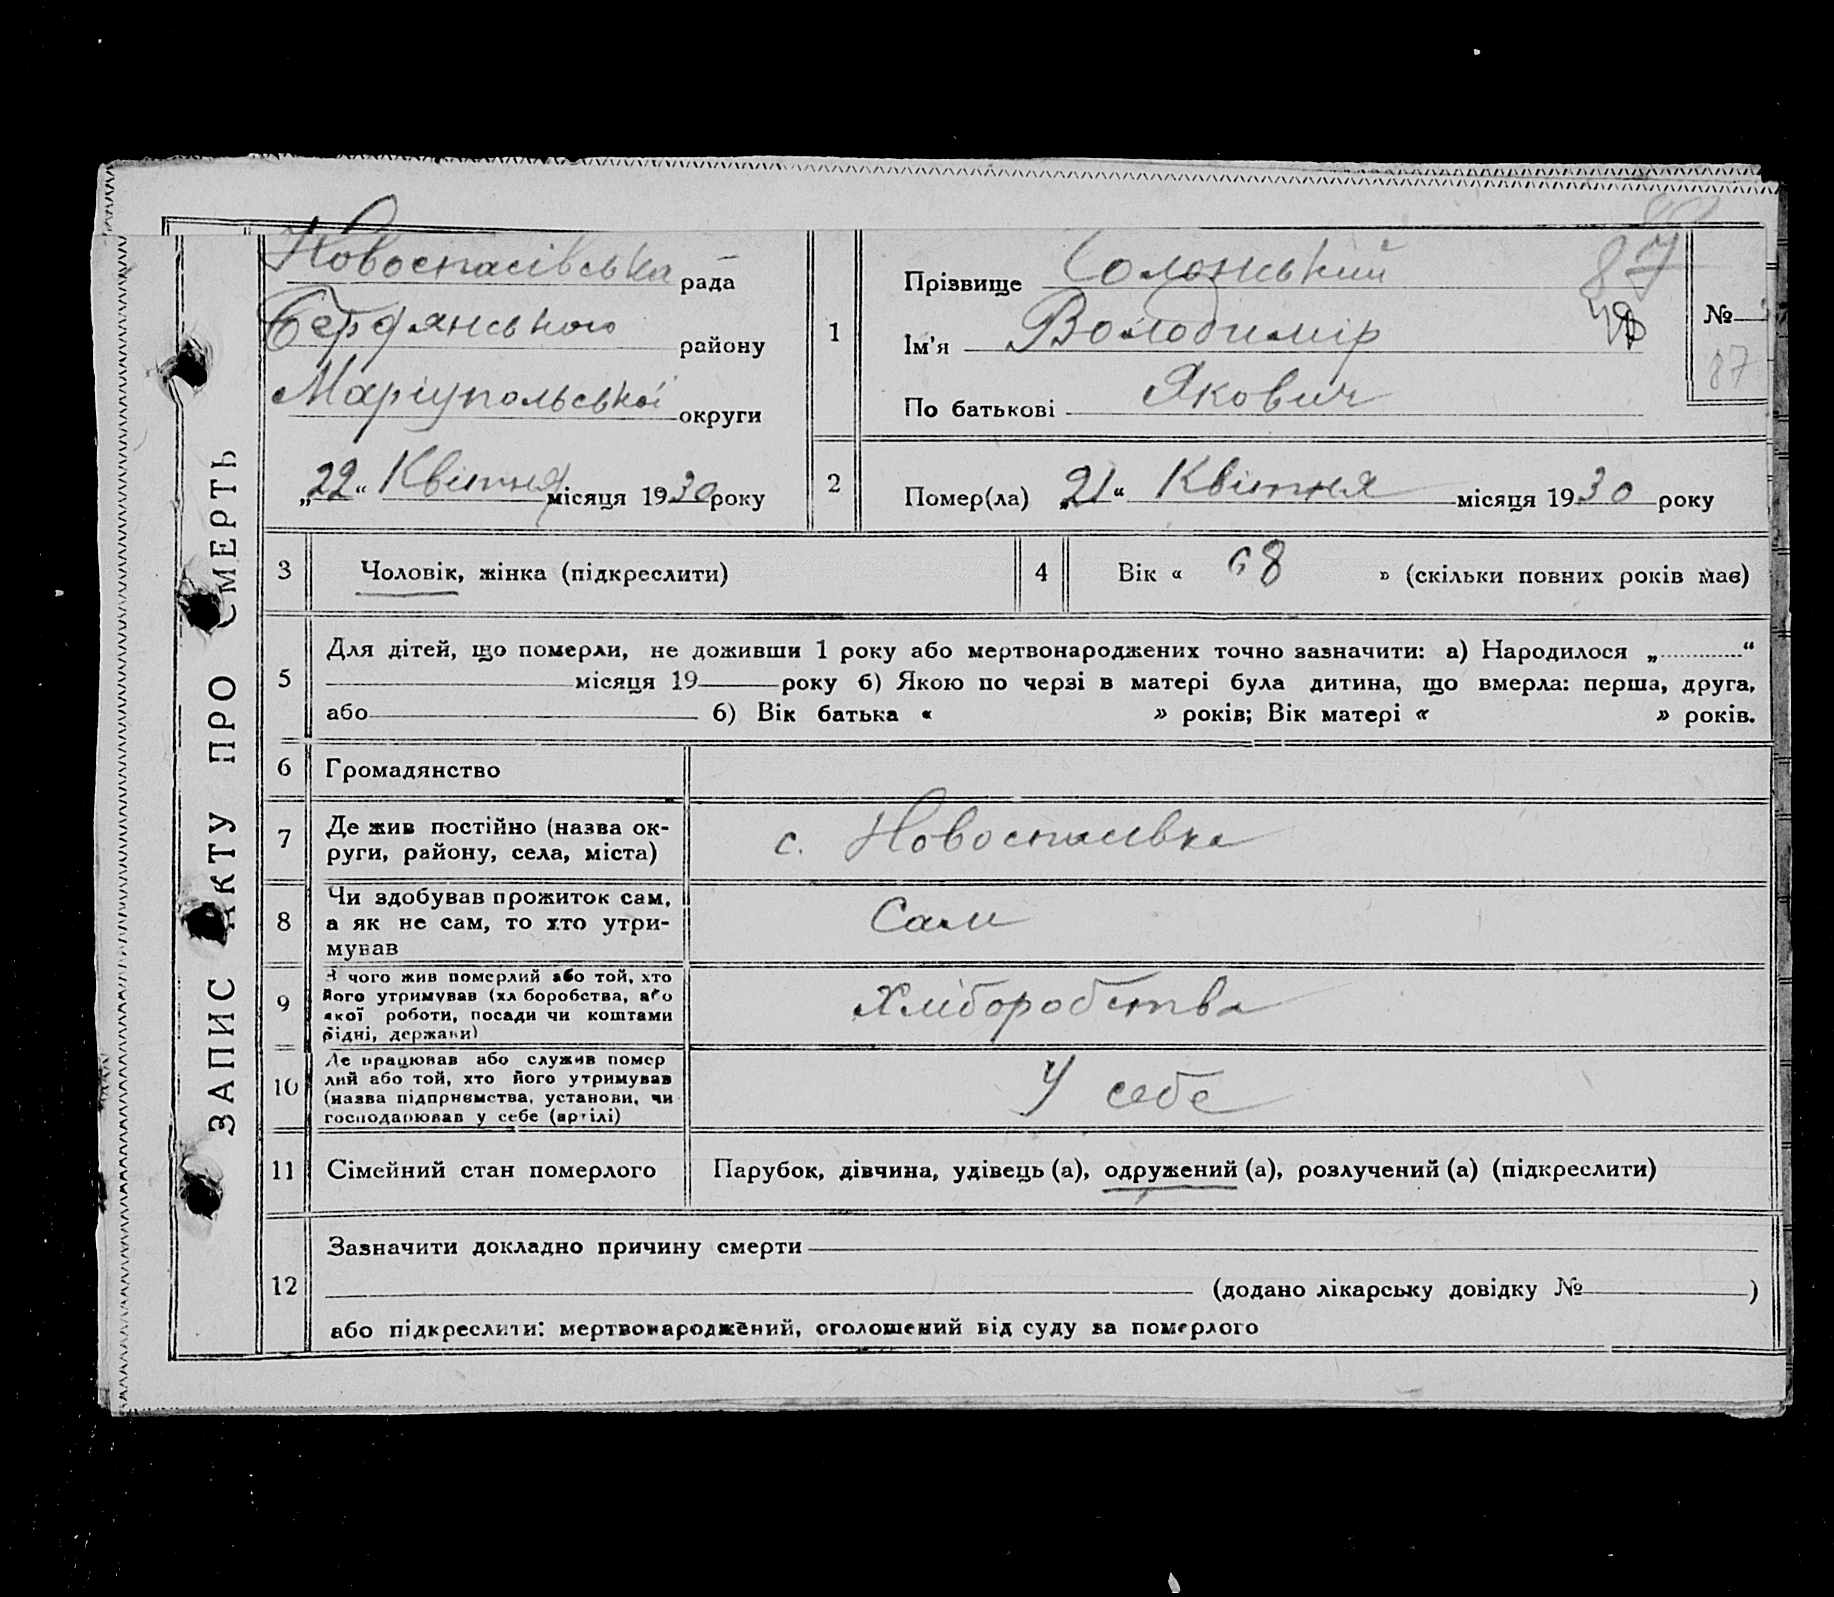 ЗАПИС АКТУ ПРО СМЕРТЬ
Новоспасівська рада
Бердянського району
Маріупольської округи
„22“ Квітня місяця 1930 року
1
Прізвище Солонський
Ім'я Володимір
По батькові Якович
87
№
87
2
Помер(ла) „21“ Квітня місяця 1930 року
3 Чоловік, жінка (підкреслити)
4 Вік « 68 » (скільки повних років має)
5
Для дітей, що померли, не доживши 1 року або мертвонароджених точно зазначити: а) Народилося „ “
місяця 19 року б) Якою по черзі в матері була дитина, що вмерла: перша, друга,
або б) Вік батька « » років; Вік матері « » років.
6 Громадянство
7
Де жив постійно (назва ок-
руги, району, села, міста)
с. Новоспасівка
8
Чи здобував прожиток сам,
а як не сам, то хто утри-
мував
Сам
9
З чого жив померлий або той, хто
його утримував (хліборобства, або
якої роботи, посади чи коштами
рідні, держави)
Хліборобства
10
Де працював або служив помер
лий або той, хто його утримував
(назва підприємства, установи, чи
господарював у себе (артілі)
У себе
11 Сімейний стан померлого
Парубок, дівчина, удівець (а), одружений (а), розлучений (а) (підкреслити)
12
Зазначити докладно причину смерти
(додано лікарську довідку № )
або підкреслити: мертвонароджений, оголошений від суду за померлого